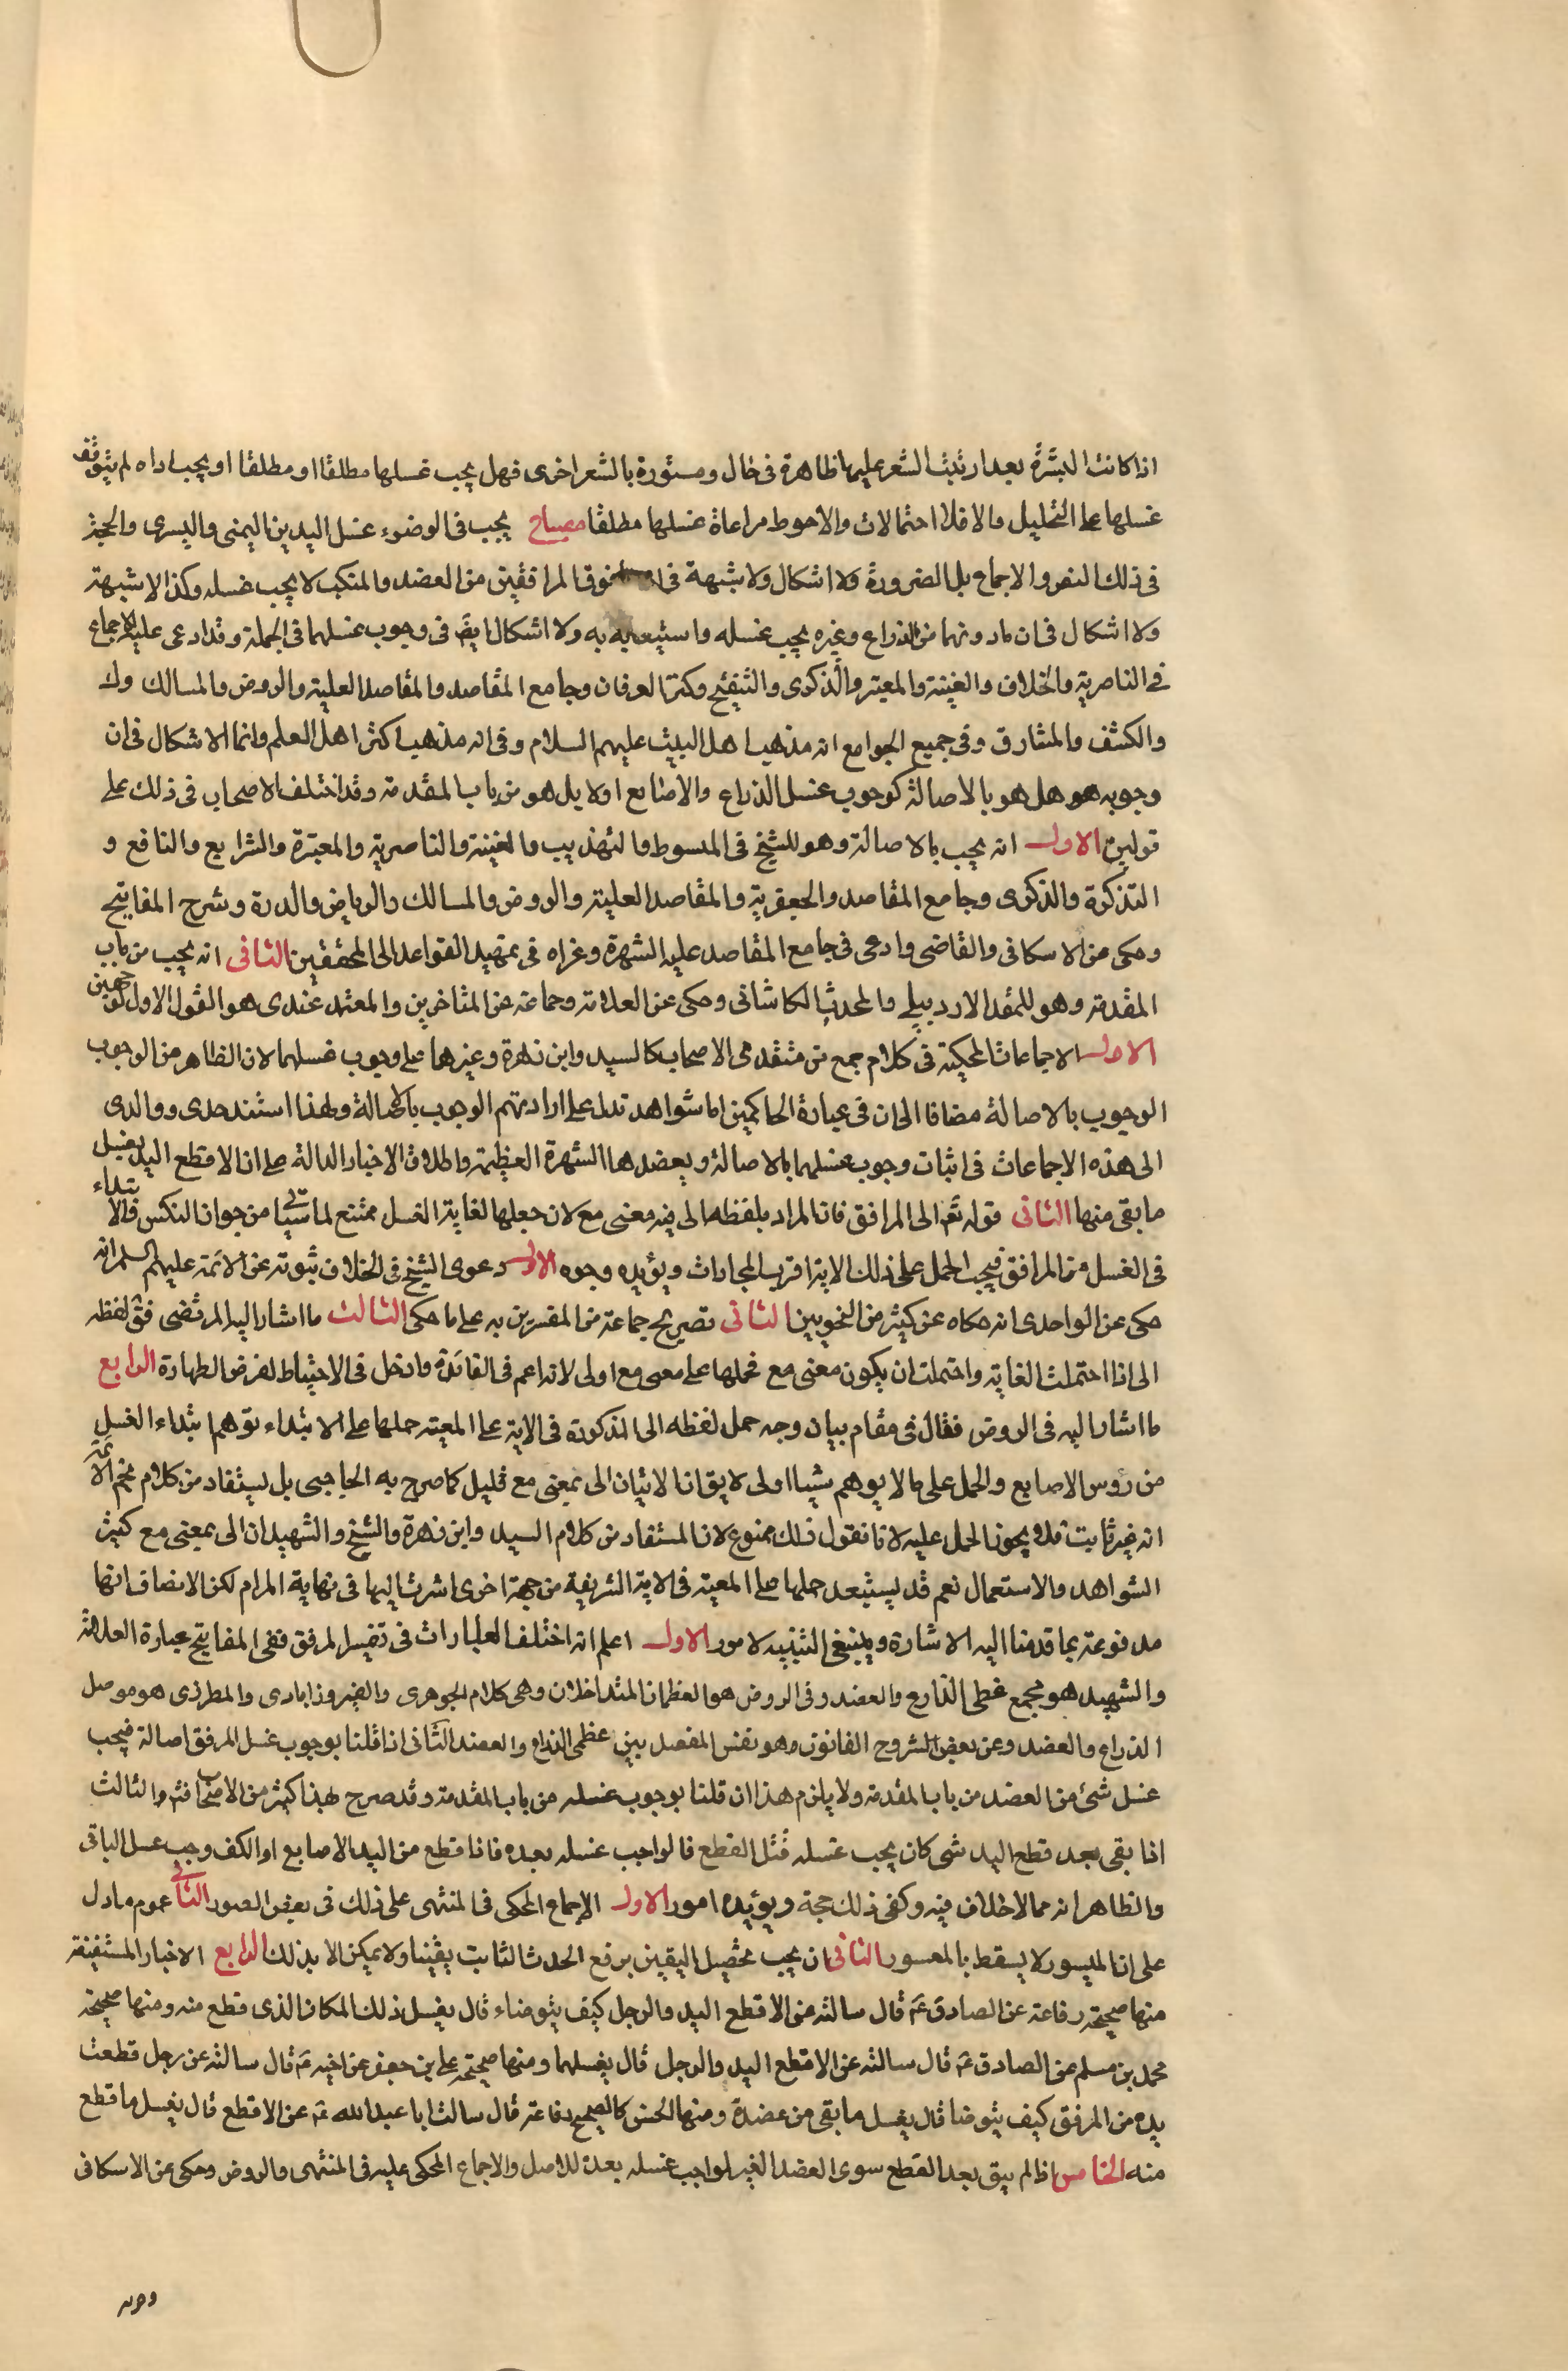 اذا كانت البشرة بعد ان ينبت الشعر عليها ظاهرة فى حال ومستورة بالشعر اخرى فهل يجب غسلها مطلقا او مطلقا او يجب اذا لم يتوقف
غسلها على التخليل والا فلا احتمالات والاحوط مراعاة غسلها مطلقا مصباح يجب فى الوضوء غسل اليدين اليمنى واليسرى والحجة
فى ذلك النص والاجماع بل الضرورة ولا اشكال ولا شبهة فى فوق المرافقين من العضد والمنكب لا يجب غسله وكذا لا شبهة
ولا اشكال فى ان ما دونهما من الذراع وغيره يجب غسله واستيعابه به ولا اشكال ايضا فى وجوب غسلهما فى الجملة وقد ادعى عليه الاجماع
فى الناصرية والخلاف والغنية والمعتبر والذكرى والتنقيح وكنز العرفان وجامع المقاصد والمقاصد العلية والروض والمسالك وك
والكشف والمشارق وفى جميع الجوامع انه مذهب اهل البيت عليهم السلام وفى انه مذهب اكثر اهل العلم وانما الاشكال فى ان
وجوبه هو هل هو بالاصالة كوجوب غسل الذراع والاصابع اولا بل هو من باب المقدمة وقد اختلف الاصحاب فى ذلك على
قولين الاول انه يجب بالاصالة وهو للشيخ فى المبسوط والتهذيب والغنية والناصرية والمعتبرة والشرايع والنافع و
التذكرة والذكرى وجامع المقاصد والجعفرية والمقاصد العلية والروض والمسالك والرياض والدرة وشرح المفاتيح
وحكى عن الاسكافى والقاضى وادعى فى جامع المقاصد عليه الشهرة وعزاه فى تمهيد القواعد الى المحققين الثانى انه يجب من باب
المقدمة وهو للمقد الاردبيلى والمحدث الكاشانى وحكى عن العلامة وجماعة من المتاخرين والمعتمد عندى هو القول الاول لوجهين
الاول الاجماعات المحكية فى كلام جمع من متقدمى الاصحاب كالسيد وابن زهرة وغيرهما على وجوب غسلهما لان الظاهر من الوجوب
الوجوب بالاصالة مضافا الى ان فى عبارة الحاكمين لها شواهد تدل على ارادتهم الوجوب بالاصالة ولهذا استند جدى ووالدى
الى هذه الاجماعات فى اثبات وجوب غسلهما بالاصالة ويعضدها الشهرة العظيمة واطلاق الاخبار الدالة على ان الاقطع اليد يغسل
ما بقى منها الثانى قوله تع الى المرافق فان المراد بلفظه الى فيه معنى مع لان جعلها لغاية الغسل ممتنع لما سياتى من جواز النكس والابتداء
فى الغسل من المرافق فيجب الحمل على ذلك لانه اقرب المجازات ويؤيده وجوه الاول دعوى الشيخ فى الخلاف ثبوته عن الائمة عليهم السلم انه
حكى عن الواحدى انه حكاه عن كثير من النحويين الثانى تصريح جماعة من المفسرين به على ما حكى الثالث ما اشار اليه المرتضى فى لفظه
الى اذا احتملت الغاية واحتملت ان يكون معنى مع فحملها على معنى مع اولى لانه اعم فى الفائدة وادخل فى الاحتياط لفرض الطهارة الرابع
ما اشار اليه فى الروض فقال فى مقام بيان وجه حمل لفظه الى المذكورة فى الاية على المعية حملها على الابتداء توهم ابتداء الغسل
من رؤس الاصابع والحمل على ما لا يوهم شيئا اولى لا يق انا الاتيان الى بمعنى مع قليل كما صرح به الحاجبى بل يستفاد من كلام نجم الائمة
انه غير ثابت فلا يجوز الحمل عليه لانا نقول ذلك ممنوع لان المستفاد من كلام السيد وابن زهرة والشيخ والشهيد ان الى بمعنى مع كثير
الشواهد والاستعمال نعم قد يستبعد حملها على المعية فى الاية الشريفة من جهة اخرى اشرت اليها فى نهاية المرام لكن الانصاف انها
مدفوعة بما قدمنا اليه الاشارة وينبغى التنبيه لامور الاول اعلم انه اختلف العبارات فى تفسير المرفق ففى المفاتيح عبارة العلامة
والشهيد هو مجمع عظمى الذراع والعضد وفى الروض هو العظمان المتداخلان وهى كلام الجوهرى والفيروزابادى والمطرزى هو موصل
الذراع والعضد وعن بعض شروح القانون هو نفس المفصل بين عظمى الذراع والعضد الثانى اذا قلنا بوجوب غسل المرفق اصالة فيجب
غسل شئ من العضد من باب المقدمة ولا يلزم هذا ان قلنا بوجوب غسله من باب المقدمة وقد صرح بهذا كثير من الاصحاب فتم والثالث
اذا بقى بعد قطع اليد شى كان يجب غسله قبل القطع فالواجب غسله بعده فاذا قطع من اليد الاصابع او الكف وجب غسل الباقى
والظاهر انه مما لا خلاف فيه وكفى ذلك حجة ويؤيده امور الاول الاجماع المحكى فى المنتهى على ذلك فى بعض الصور الثانى عموم ما دل
على ان الميسور لا يسقط بالمعسور الثانى ان يجب تحصيل اليقين برفع الحدث الثابت يقينا ولا يمكن الا بذلك الرابع الاخبار المستفيضة
منها صحيحة رفاعة عن الصادق ع قال سالته عن الاقطع اليد والرجل كيف يتوضاء قال يغسل ذلك المكان الذى قطع منه ومنها صحيحة
محمد بن مسلم عن الصادق ع قال سالته عن الاقطع اليد والرجل قال يغسلهما ومنها صحيحة على بن جعفر عن اخيه ع قال سالته عن رجل قطعت
يده من المرفق كيف يتوضا قال يغسل ما بقى من عضده ومنها الحسن كالصحيح رفاعة قال سالت ابا عبد الله ع عن الاقطع قال يغسل ما قطع
منه الخامس اذا لم يبق بعد القطع سوى العضد الغير الواجب غسله بعده للاصل والاجماع المحكى عليه فى المنتهى والروض وحكى عن الاسكافى